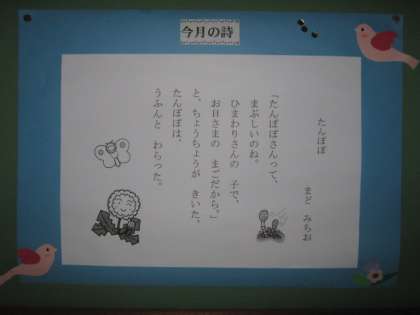 今月の詩
たんぽぽ
まど みちお
「たんぽぽさんって、
まぶしいのね。
ひまわりさんの 子で、
お日さまの まごだから。」
と、ちょうちょうが きいた。
たんぽぽは、
うふんと わらった。